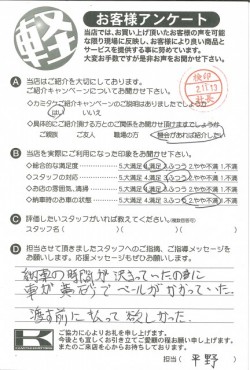 軽
お客様アンケート
当店では、お買い上げ頂いたお客様の声を可能
な限り現場に反映し、お客様により良い商品と
サービスを提供する事に努めています。
大変お手数ですが是非お声をお聞かせ下さい。
A 当店はご紹介を大切にしております。
ご紹介キャンペーンについてお聞かせ下さい。
検印
2.11.13
はい いいえ
ご親族 ご友人 職場の方 機会があれば紹介したい
B 当店を実際にご利用になった印象をお聞かせ下さい。
◇総合的な満足度 5.大満足 4.満足 3.ふつう 2.やや不満 1.不満
◇スタッフの対応 5.大満足 4.満足 3.ふつう 2.やや不満 1.不満
◇お店の雰囲気、清掃 5.大満足 4.満足 3.ふつう 2.やや不満 1.不満
◇納車時のお車の状態 5.大満足 4.満足 3.ふつう 2.やや不満 1.不満
C 評価したいスタッフがいれば教えてください。(複数回答可)
スタッフ名( )( )( )
D 担当させて頂きましたスタッフへのご指摘、ご指導
メッセージをお願いします。応援メッセージもぜひ
お聞かせください!
納車の時間が決まっていたのに
車が黄砂でベールがかかっていた。
渡す前に払って欲しかった。
ご協力に心よりお礼を申し上げます。
今後とも宜しくお引き立てご愛顧の程お願い申し上げます。
またのご来店を心からお待ちしております。
担当( 平野 )